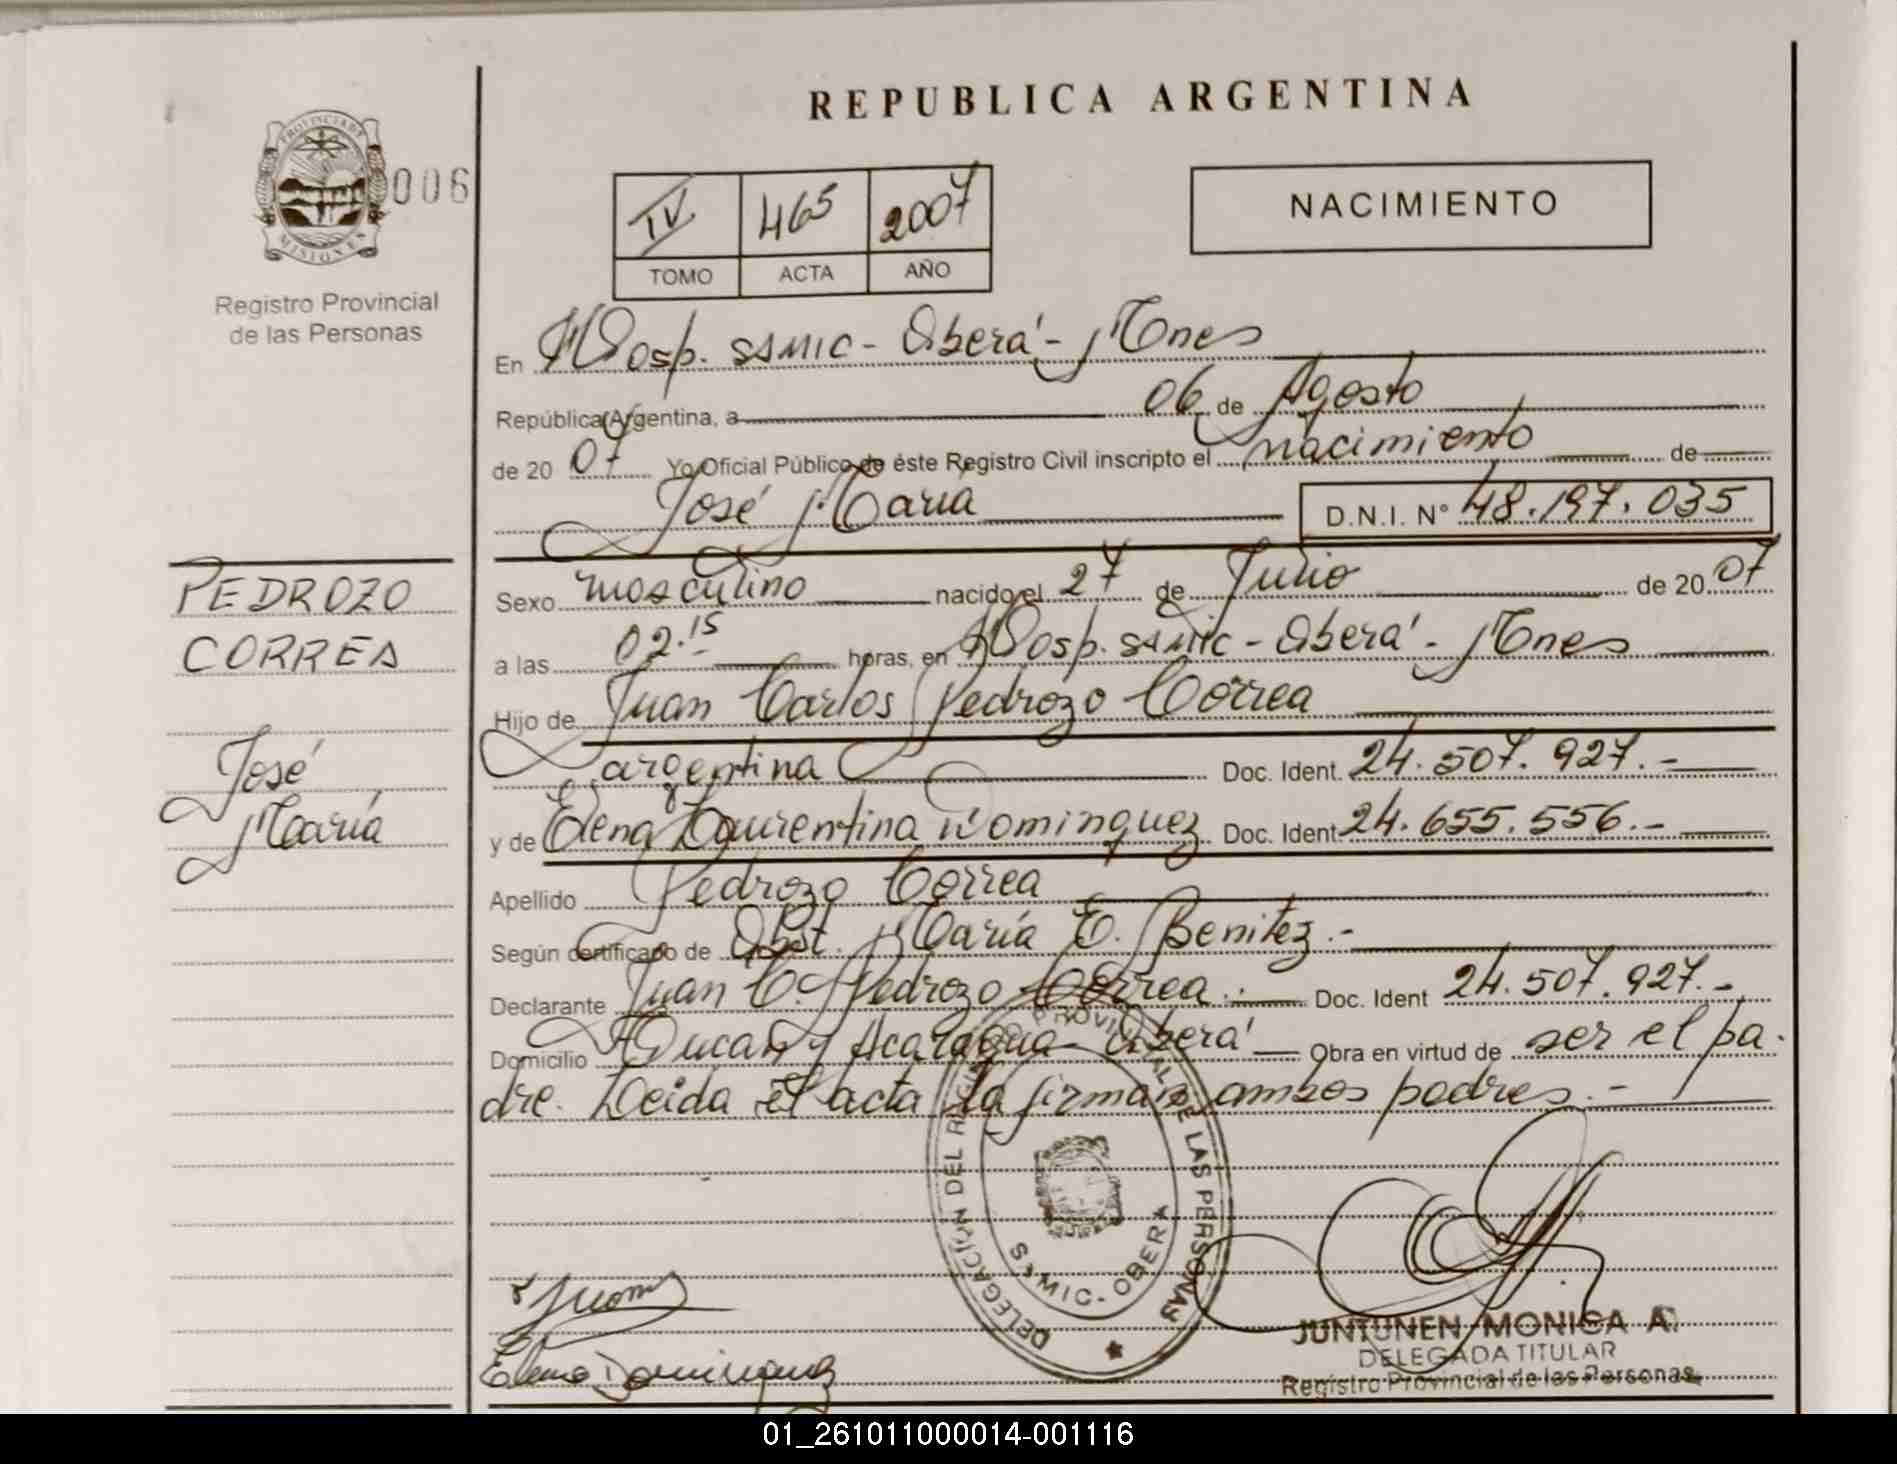 REPUBLICA ARGENTINA
PROVINCIA DE
MISIONES
006
Registro Provincial
de las Personas
IV 465 2007
TOMO ACTA AÑO
NACIMIENTO
En Hosp. SAMIC - Oberá - Mnes
República Argentina, a 06 de Agosto
de 20 07 Yo Oficial Público de éste Registro Civil inscripto el nacimiento de
José María D.N.I. N° 48.197.035
PEDROZO
CORREA
José
María
Sexo masculino nacido el 27 de Julio de 20 07
a las 02.15 horas, en Hosp. SAMIC - Oberá - Mnes
Hijo de Juan Carlos Pedrozo Correa
argentina Doc. Ident. 24.507.927.-
y de Elena Laurentina Dominguez Doc. Ident. 24.655.556.-
Apellido Pedrozo Correa
Según certificado de Obst. María E. Benitez.-
Declarante Juan C. Pedrozo Correa.- Doc. Ident 24.507.927.-
Domicilio Acaragua - Oberá Obra en virtud de ser el pa-
dre. Leída el acta la firman ambos padres.-
DELEGACIÓN DEL REGISTRO PROVINCIAL DE LAS PERSONAS
SAMIC - OBERA
Juan
Elena Dominguez
JUNTUNEN MONICA A.
DELEGADA TITULAR
Registro Provincial de las Personas
01_261011000014-001116